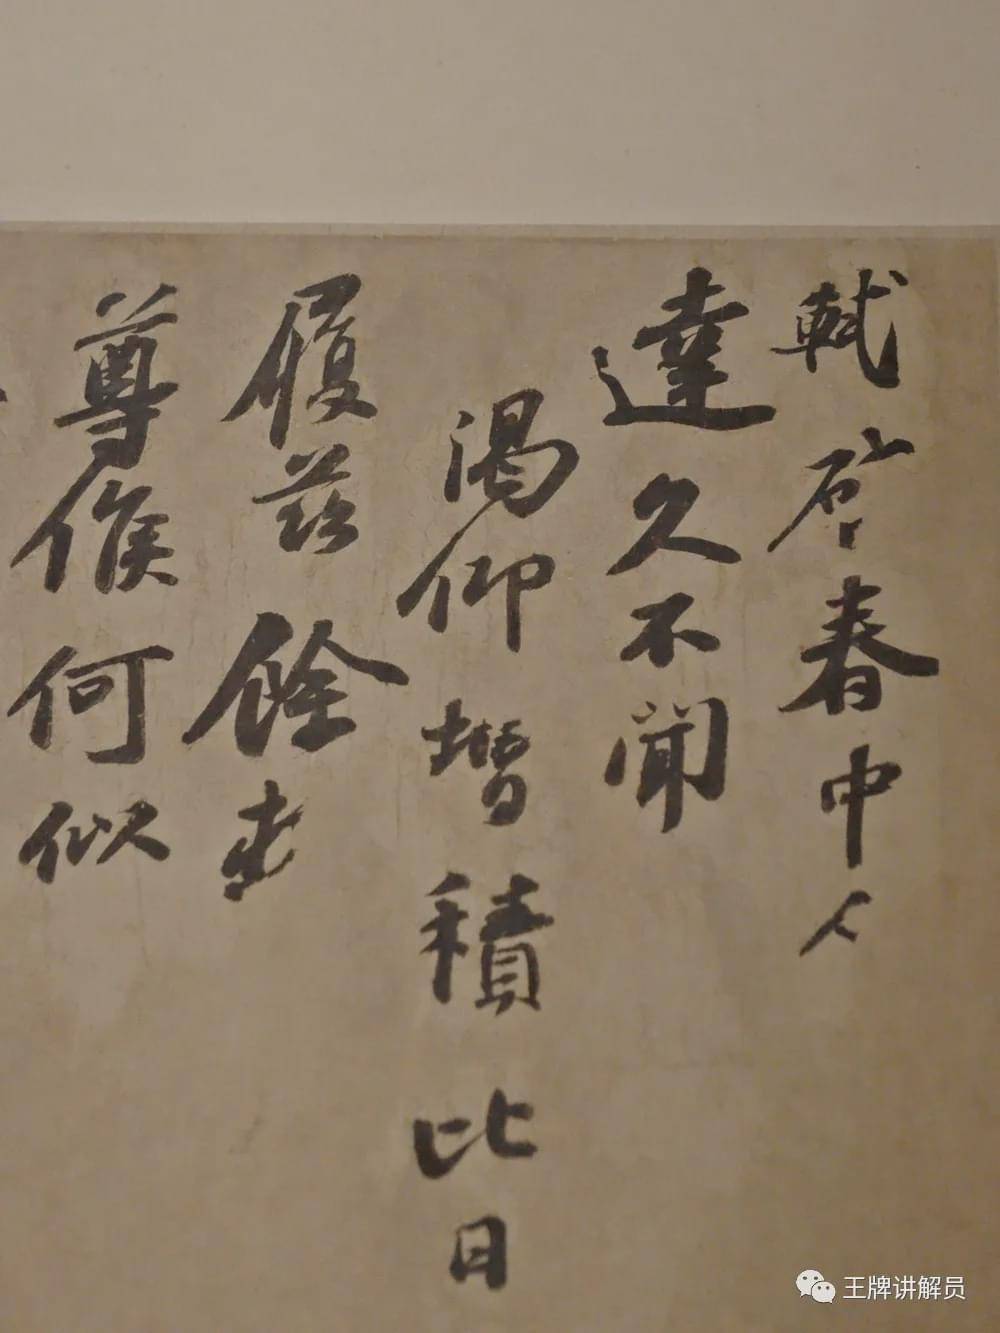 軾启春中人
達久不聞
渴仰增積比日
履茲餘
尊候何似
王牌讲解员